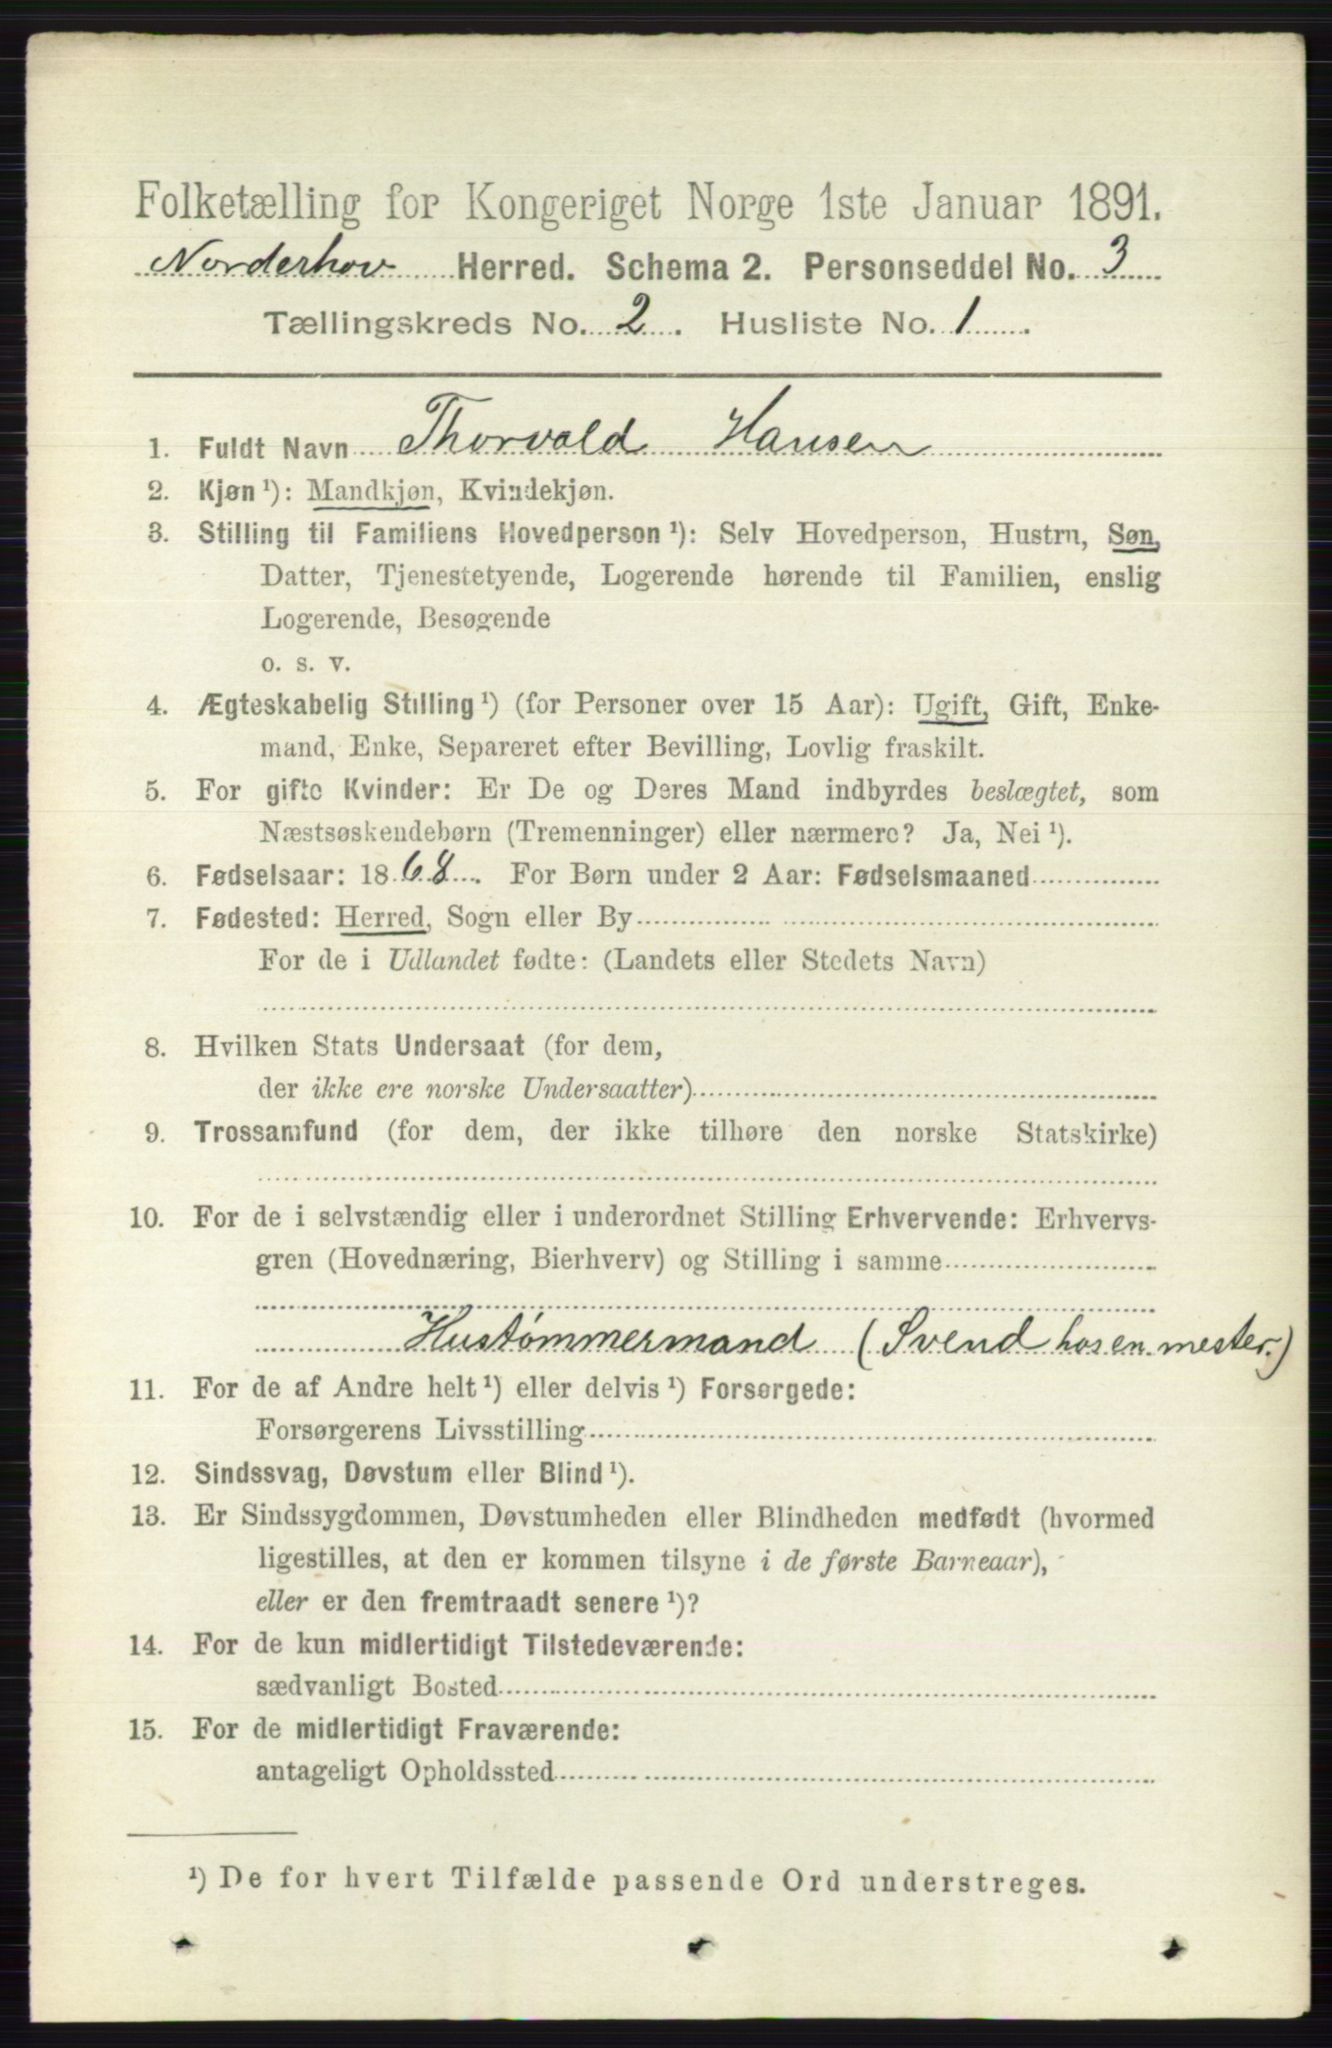 Folketælling for Kongeriget Norge 1ste Januar 1891.
Norderhov Herred. Schema 2. Personseddel No. 3
Tællingskreds No. 2. Husliste No. 1.
1. Fuldt Navn Thorvald Hansen
2. Kjøn ¹): Mandkjøn, Kvindekjøn.
3. Stilling til Familiens Hovedperson ¹): Selv Hovedperson, Hustru, Søn,
Datter, Tjenestetyende, Logerende hørende til Familien, enslig
Logerende, Besøgende
o. s. v.
4. Ægteskabelig Stilling ¹) (for Personer over 15 Aar): Ugift, Gift, Enke-
mand, Enke, Separeret efter Bevilling, Lovlig fraskilt.
5. For gifte Kvinder: Er De og Deres Mand indbyrdes beslægtet, som
Næstsøskendebørn (Tremenninger) eller nærmere? Ja, Nei ¹).
6. Fødselsaar: 1868. For Børn under 2 Aar: Fødselsmaaned
7. Fødested: Herred, Sogn eller By
For de i Udlandet fødte: (Landets eller Stedets Navn)
8. Hvilken Stats Undersaat (for dem,
der ikke ere norske Undersaatter)
9. Trossamfund (for dem, der ikke tilhøre den norske Statskirke)
10. For de i selvstændig eller i underordnet Stilling Erhvervende: Erhvervs-
gren (Hovednæring, Bierhverv) og Stilling i samme
Hustømmermand (Svend hos en mester.)
11. For de af Andre helt ¹) eller delvis ¹) Forsørgede:
Forsørgerens Livsstilling
12. Sindssvag, Døvstum eller Blind ¹).
13. Er Sindssygdommen, Døvstumheden eller Blindheden medfødt (hvormed
ligestilles, at den er kommen tilsyne i de første Barneaar),
eller er den fremtraadt senere ¹)?
14. For de kun midlertidigt Tilstedeværende:
sædvanligt Bosted
15. For de midlertidigt Fraværende:
antageligt Opholdssted
¹) De for hvert Tilfælde passende Ord understreges.